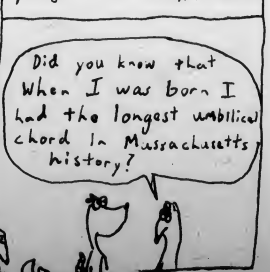 Did you know that
when I was born I
had the longest umbilical
chord in Massachusetts
history?